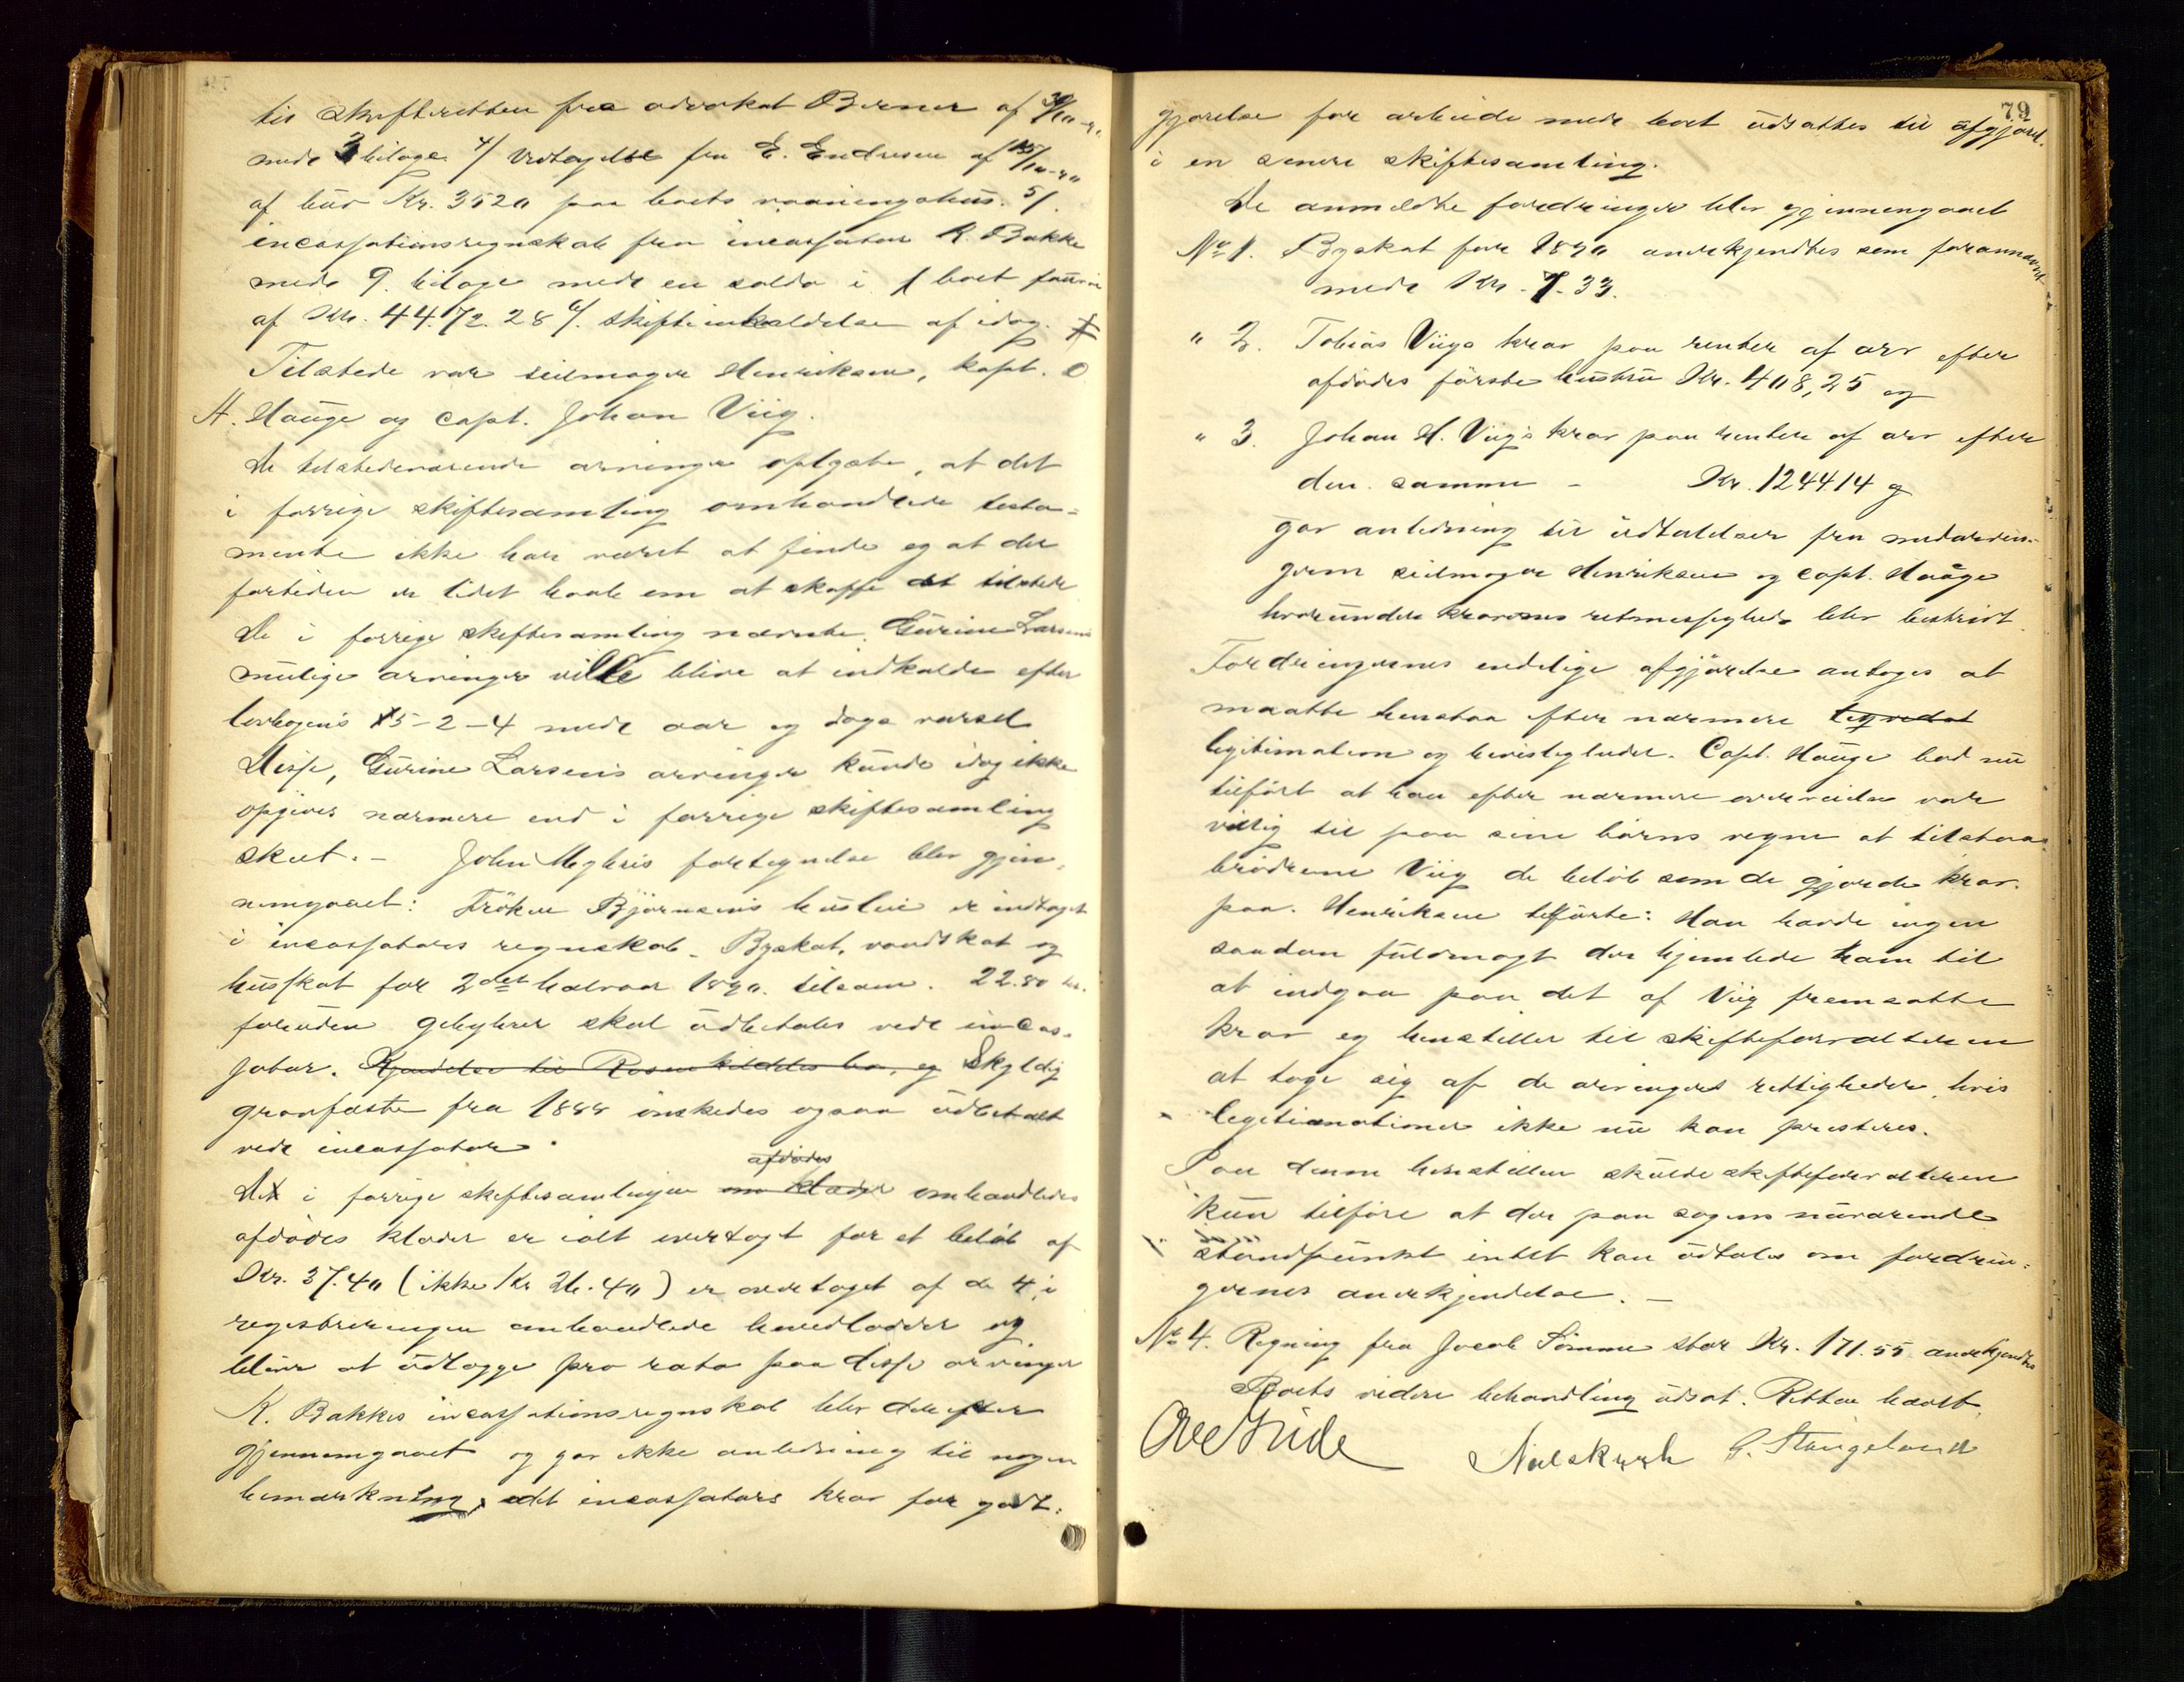 til Skifteretten fra advokat Berner af 30/10-90
med 3 bilage 4/ Vedtagelse fra E. Endresen af 15/10-90
af bud Kr. 3520 paa boets vaaningshus. 5/
incassationsregnskab fra incassator K. Bakke
med 9 bilage med en saldo i boet favør
af Kr. 44.72.28 6/. Skifteindkaldelse af idag.
Tilstede var seilmager Henriksen, kapt. O
H. Hauge og Capt. Johan Viig.
De tilstedeværende arvinger oplyste, at det
i forrige skiftesamling omhandlede testa-
mente ikke har været at finde og at der
fortiden er lidet haab om at skaffe det tilstede
De i forrige skiftesamling nævnte Gurine Larsens
mulige arvinger ville blive at indkalde efter
lovbogens 5-2-4 med aar og dags varsel
Disse, Gurine Larsens arvinger kunde idag ikke
opgives nærmere end i forrige skiftesamling
skeet. - John Møglers fortegnelse blev gjen-
nemgaaet: Frøken Bjørnsens husleie er indtaget
i incassators regnskab. Byskat, vandskat og
husskat for 2det halvaar 1890 tilsam. 22.80 kr.
foruden gebyrer skal udbetales ved incas-
sator. Kjendelse til Rosenkildes bo, og Skyldig
gravfæste fra 1888 ønskedes ogsaa udbetalt
ved incassator.
afdødes
Det i forrige skiftesamlingen om klæder omhandledes
afdødes klæder er ialt overtagt for et beløb af
Kr. 37.40 (ikke Kr 26.40) er overtaget af de 4 i
registreringen omhandlede hovedlodder og
bliver at udlægge pro rata paa disse arvinger
K. Bakkes incassationsregnskab blev derefter
gjennemgaaet og gav ikke anledning til nogen
bemærkning, idet incassators krav for godt-
79
gjørelse for arbeide med boet udsattes til afgjørel.
i en senere skiftesamling.
De anmeldte fordringer blev gjennemgaaet
No 1. Byskat for 1890 anerkjendtes som forannævnt
med Kr. 7.33.
" 2. Tobias Viigs krav paa renter af arv efter
afdødes første hustru Kr. 408,25 og
" 3. Johan H. Viig's krav paa renter af arv efter
den samme - Kr. 1244 14 og
gav anledning til udtalelser fra medarvin-
gerne seilmager Henriksen og Capt. Hauge
hvorunder kravenes retmessighed blev bestridt.
Fordringernes endelige afgjørelse antoges at
maatte henstaa efter nærmere
legitimation og bevisligheder. Capt. Hauge bad nu
tilført at han efter nærmere overveielse var
villig til paa sine børns vegne at tilstaa
brødrene Viig de beløb som de gjorde krav
paa. Henriksen tilførte: Han havde ingen
saadan fuldmagt der hjemlede ham til
at indgaa paa det af Viig fremsatte
krav og henstiller til skifteforvalteren
at tage sig af de arvingers rettigheder, hvis
legitimationer ikke nu kan presteres.
Paa denne henstillen skulde skifteforvalteren
kun tilføre at der paa sagens nuværende
standpunkt intet kan udtales om fordrin-
gernes anerkjendelse. -
No 4. Regning fra Jacob Sømme stor Kr. 171.55 anerkjendtes
Boets videre behandling udsat. Retten hævet.
Ove Gude
Nils Kyrk P. Stangeland